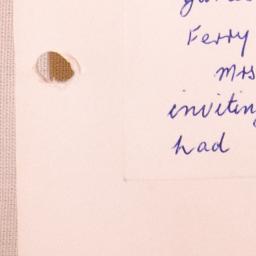 Ferry
Mrs
inviting
had